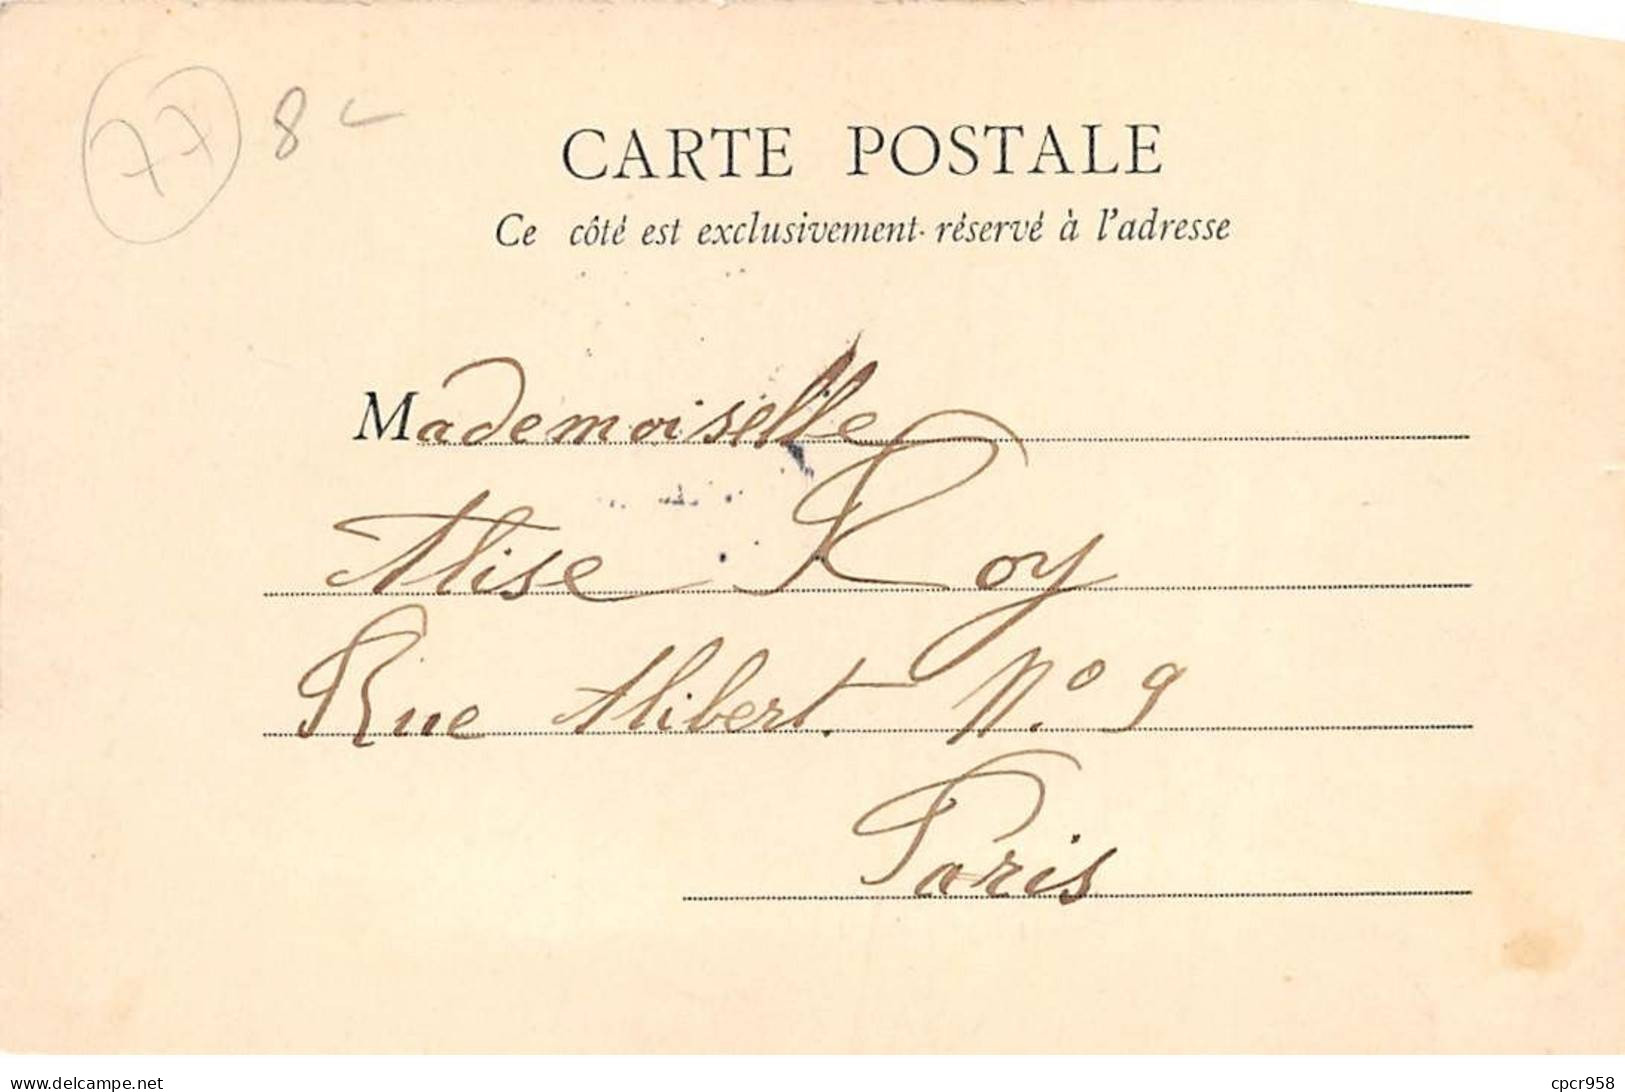 77 8
CARTE POSTALE
Ce côté est exclusivement réservé à l'adresse
Mademoiselle
Alise Roy
Rue Alibert. N.o 9
Paris
www.delcampe.net
cpcr958